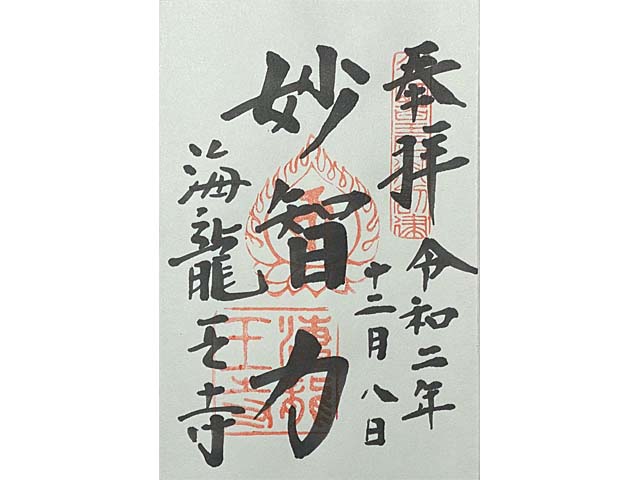 奉拝
令和二年
十二月八日
妙智力
海龍王寺
海龍
王寺